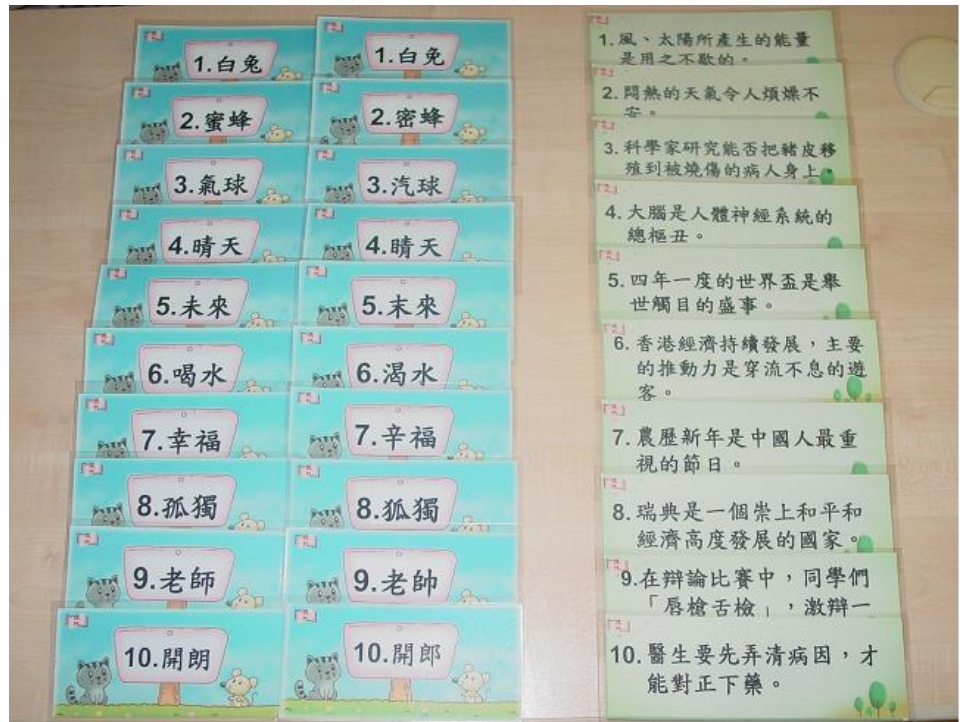 1.白兔
2.蜜蜂
3.氣球
4.晴天
5.未來
6.喝水
7.幸福
8.孤獨
9.老師
10.開朗
1.白免
2.密蜂
3.汽球
4.晴天
5.末來
6.渴水
7.辛福
8.狐獨
9.老帥
10.開郎
1.風、太陽所產生的能量
是用之不歇的。
2.悶熱的天氣令人煩燥不
安。
3.科學家研究能否把豬皮移
殖到被燒傷的病人身上。
4.大腦是人體神經系統的
總樞丑。
5.四年一度的世界盃是舉
世觸目的盛事。
6.香港經濟持續發展，主要
的推動力是穿流不息的遊
客。
7.農歷新年是中國人最重
視的節日。
8.瑞典是一個崇上和平和
經濟高度發展的國家。
9.在辯論比賽中，同學們
「唇槍舌檢」，激辯一
10.醫生要先弄清病因，才
能對正下藥。